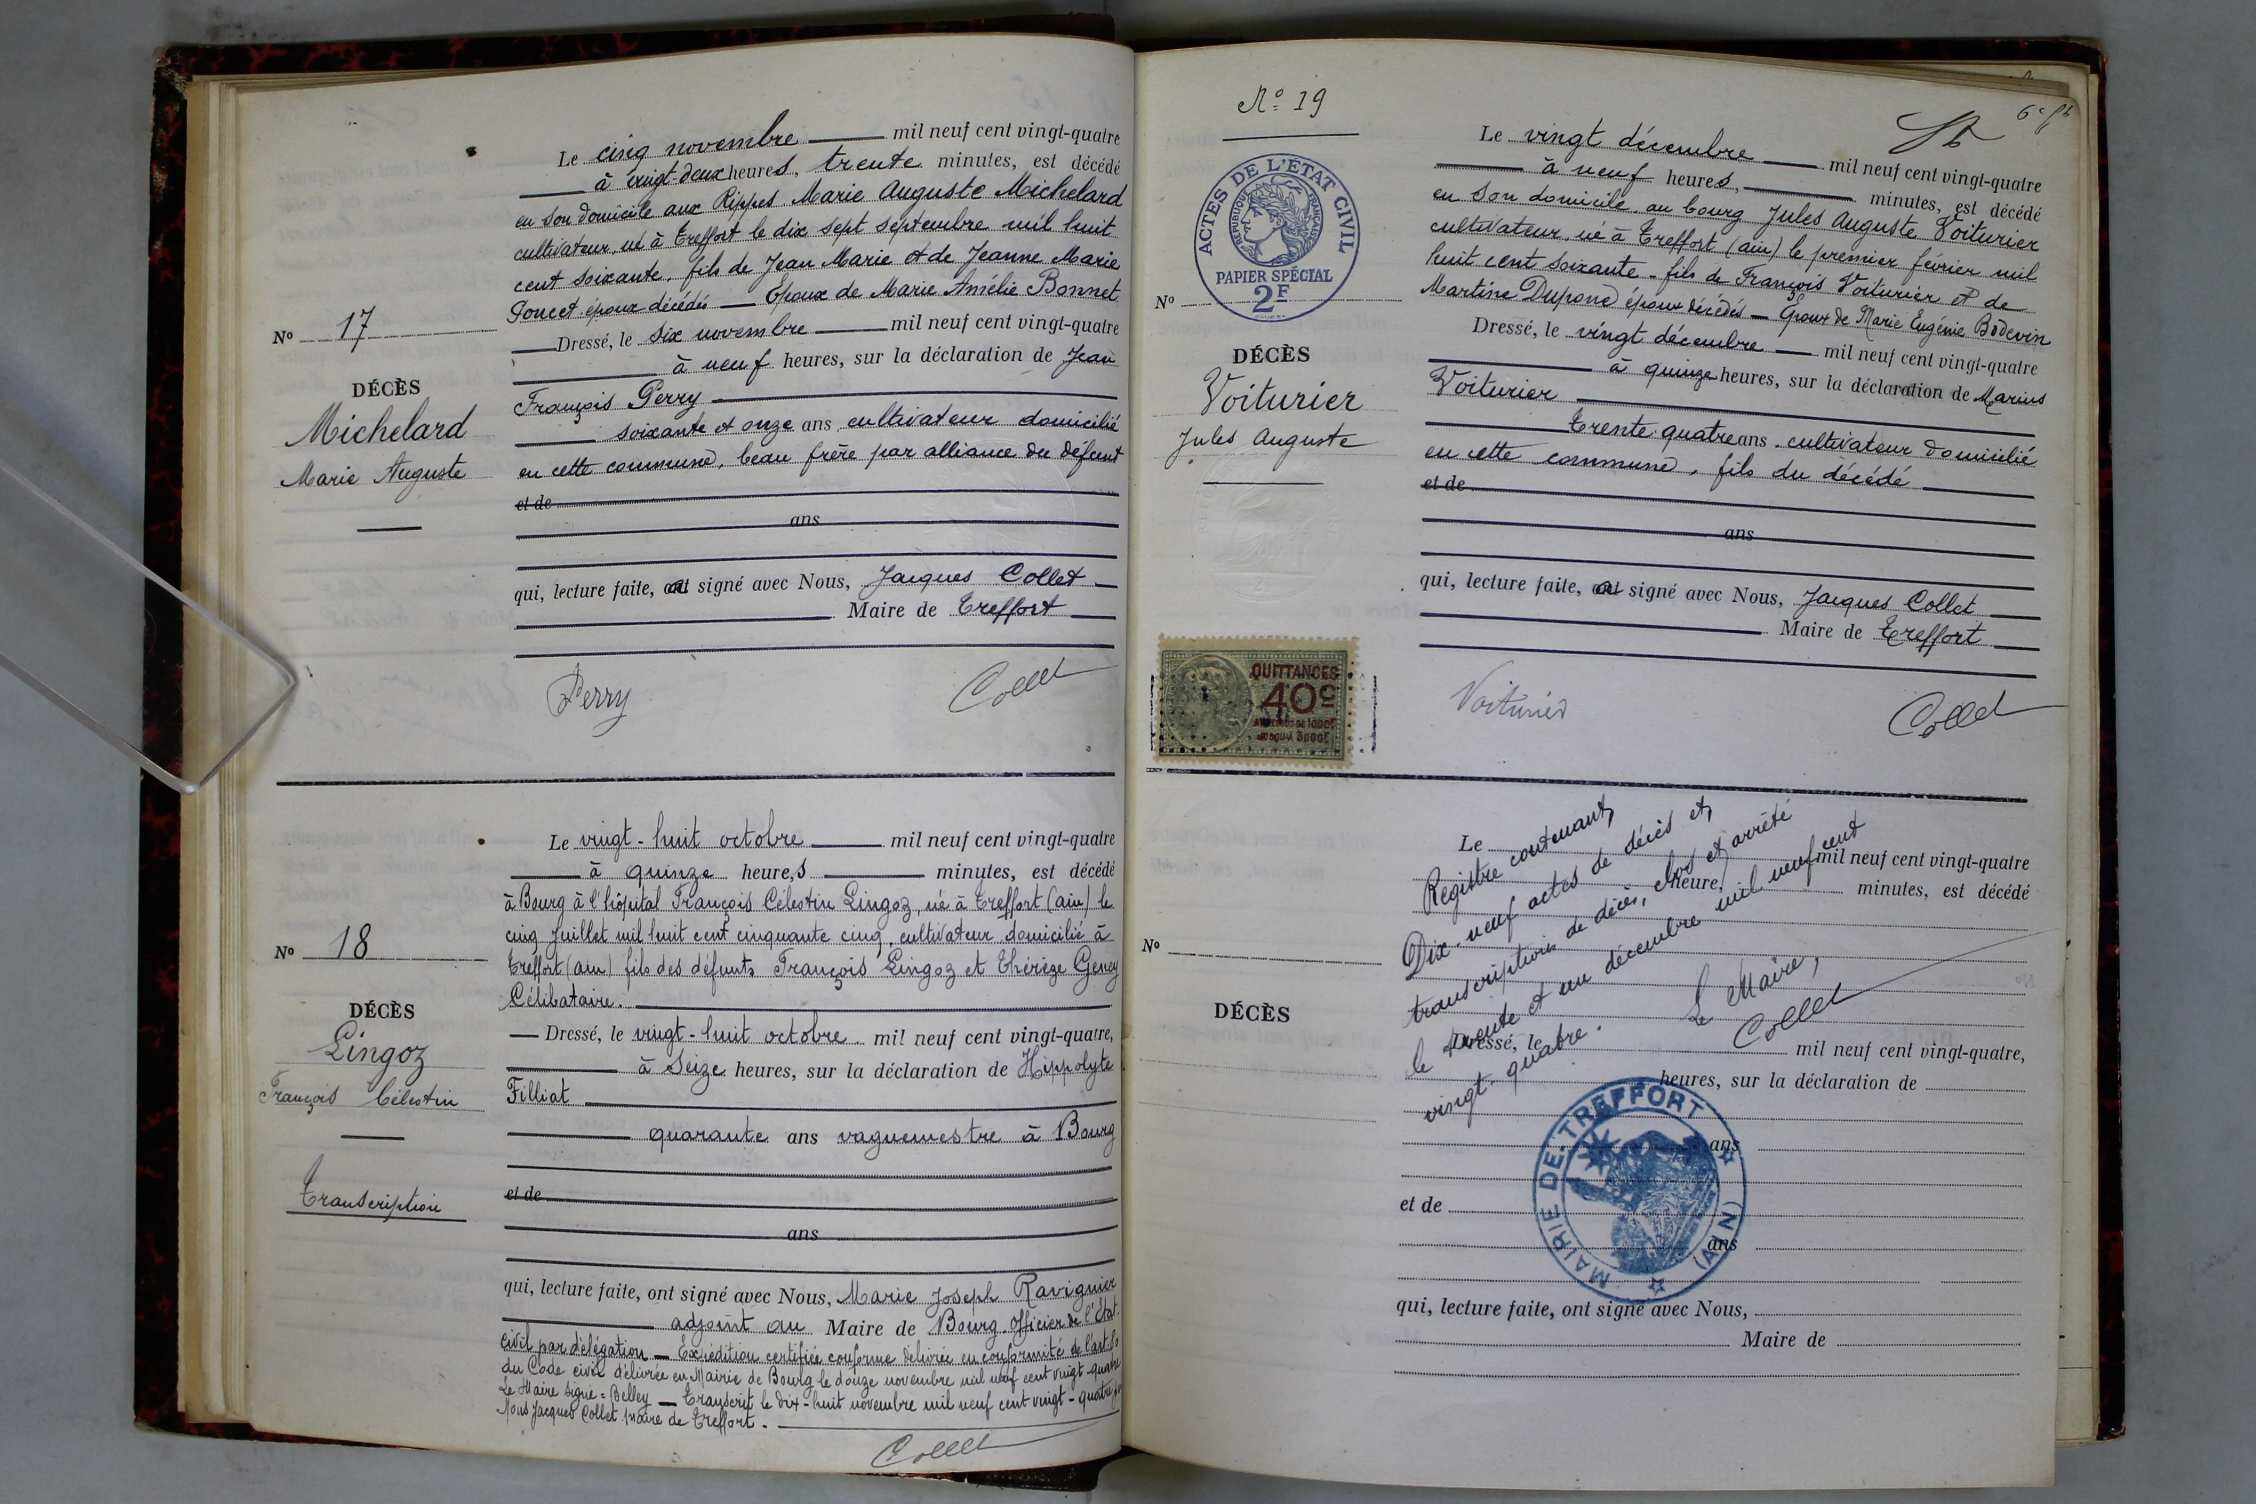 Le cinq novembre mil neuf cent vingt-quatre
à vingt-deux heures, trente minutes, est décédé
en son domicile aux Rippes Marie Auguste Michelard
cultivateur, né à Treffort le dix sept septembre mil huit
cent soixante, fils de Jean Marie et de Jeanne Marie
Goncet époux décédés — Epoux de Marie Amélie Bonnet
Nº 17
Dressé, le six novembre mil neuf cent vingt-quatre
à neuf heures, sur la déclaration de Jean
DÉCÈS
François Perry
Michelard
soixante et onze ans cultivateur domicilié
Marie Auguste
en cette commune, beau frère par alliance du défunt
et de
ans
qui, lecture faite, a signé avec Nous, Jacques Collet
Maire de Treffort
Perry
Collet
Le vingt-huit octobre mil neuf cent vingt-quatre
à quinze heures minutes, est décédé
à Bourg à l'hôpital François Célestin Lingoz, né à Treffort (ain) le
cinq Juillet mil huit cent cinquante cinq, cultivateur domicilié à
Nº 18
Treffort (ain) fils des défunts François Lingoz et Thérèze Geney
Célibataire.
DÉCÈS
Lingoz
— Dressé, le vingt-huit octobre mil neuf cent vingt-quatre,
à Seize heures, sur la déclaration de Hippolyte
François Célestin
Filliat
quarante ans vaguemestre à Bourg
Transcription
et de
ans
qui, lecture faite, ont signé avec Nous, Marie Joseph Ravignier
adjoint au Maire de Bourg. officier de l'Etat-
civil par délégation — Expédition certifiée conforme délivrée en conformité de l'art. 80
du Code civil délivrée en Mairie de Bourg le douze novembre mil neuf cent vingt-quatre
Le Maire signé = Belley — Transcrit le dix-huit novembre mil neuf cent vingt-quatre par
Nous Jacques Collet maire de Treffort.
Collet
Nº 19
6e
Le vingt décembre mil neuf cent vingt-quatre
à neuf heures, minutes, est décédé
ACTES DE L'ÉTAT CIVIL
RÉPUBLIQUE FRANÇAISE
PAPIER SPÉCIAL
2F
en son domicile au bourg Jules Auguste Voiturier
cultivateur, né à Treffort (ain) le premier février mil
huit cent soixante - fils de François Voiturier et de
Nº
Martine Dupond époux décédés — Epoux de Marie Eugénie Bodevin
Dressé, le vingt décembre mil neuf cent vingt-quatre
DÉCÈS
à quinze heures, sur la déclaration de Marius
Voiturier
Voiturier
Trente-quatre ans cultivateur domicilié
Jules Auguste
en cette commune, fils du décédé
et de
ans
qui, lecture faite, a signé avec Nous, Jacques Collet
Maire de Treffort
QUITTANCES
40c
Voiturier
Collet
Le mil neuf cent vingt-quatre
heure, minutes, est décédé
Registre contenant,
Dix-neuf actes de décès et,
transcriptions de décès, clos et arrêté
le trente et un décembre mil neuf cent
vingt-quatre.
Le Maire,
Collet
Nº
DÉCÈS
Dressé, le mil neuf cent vingt-quatre,
heures, sur la déclaration de
MAIRIE DE TREFFORT (AIN)
ans
et de
ans
qui, lecture faite, ont signé avec Nous,
Maire de